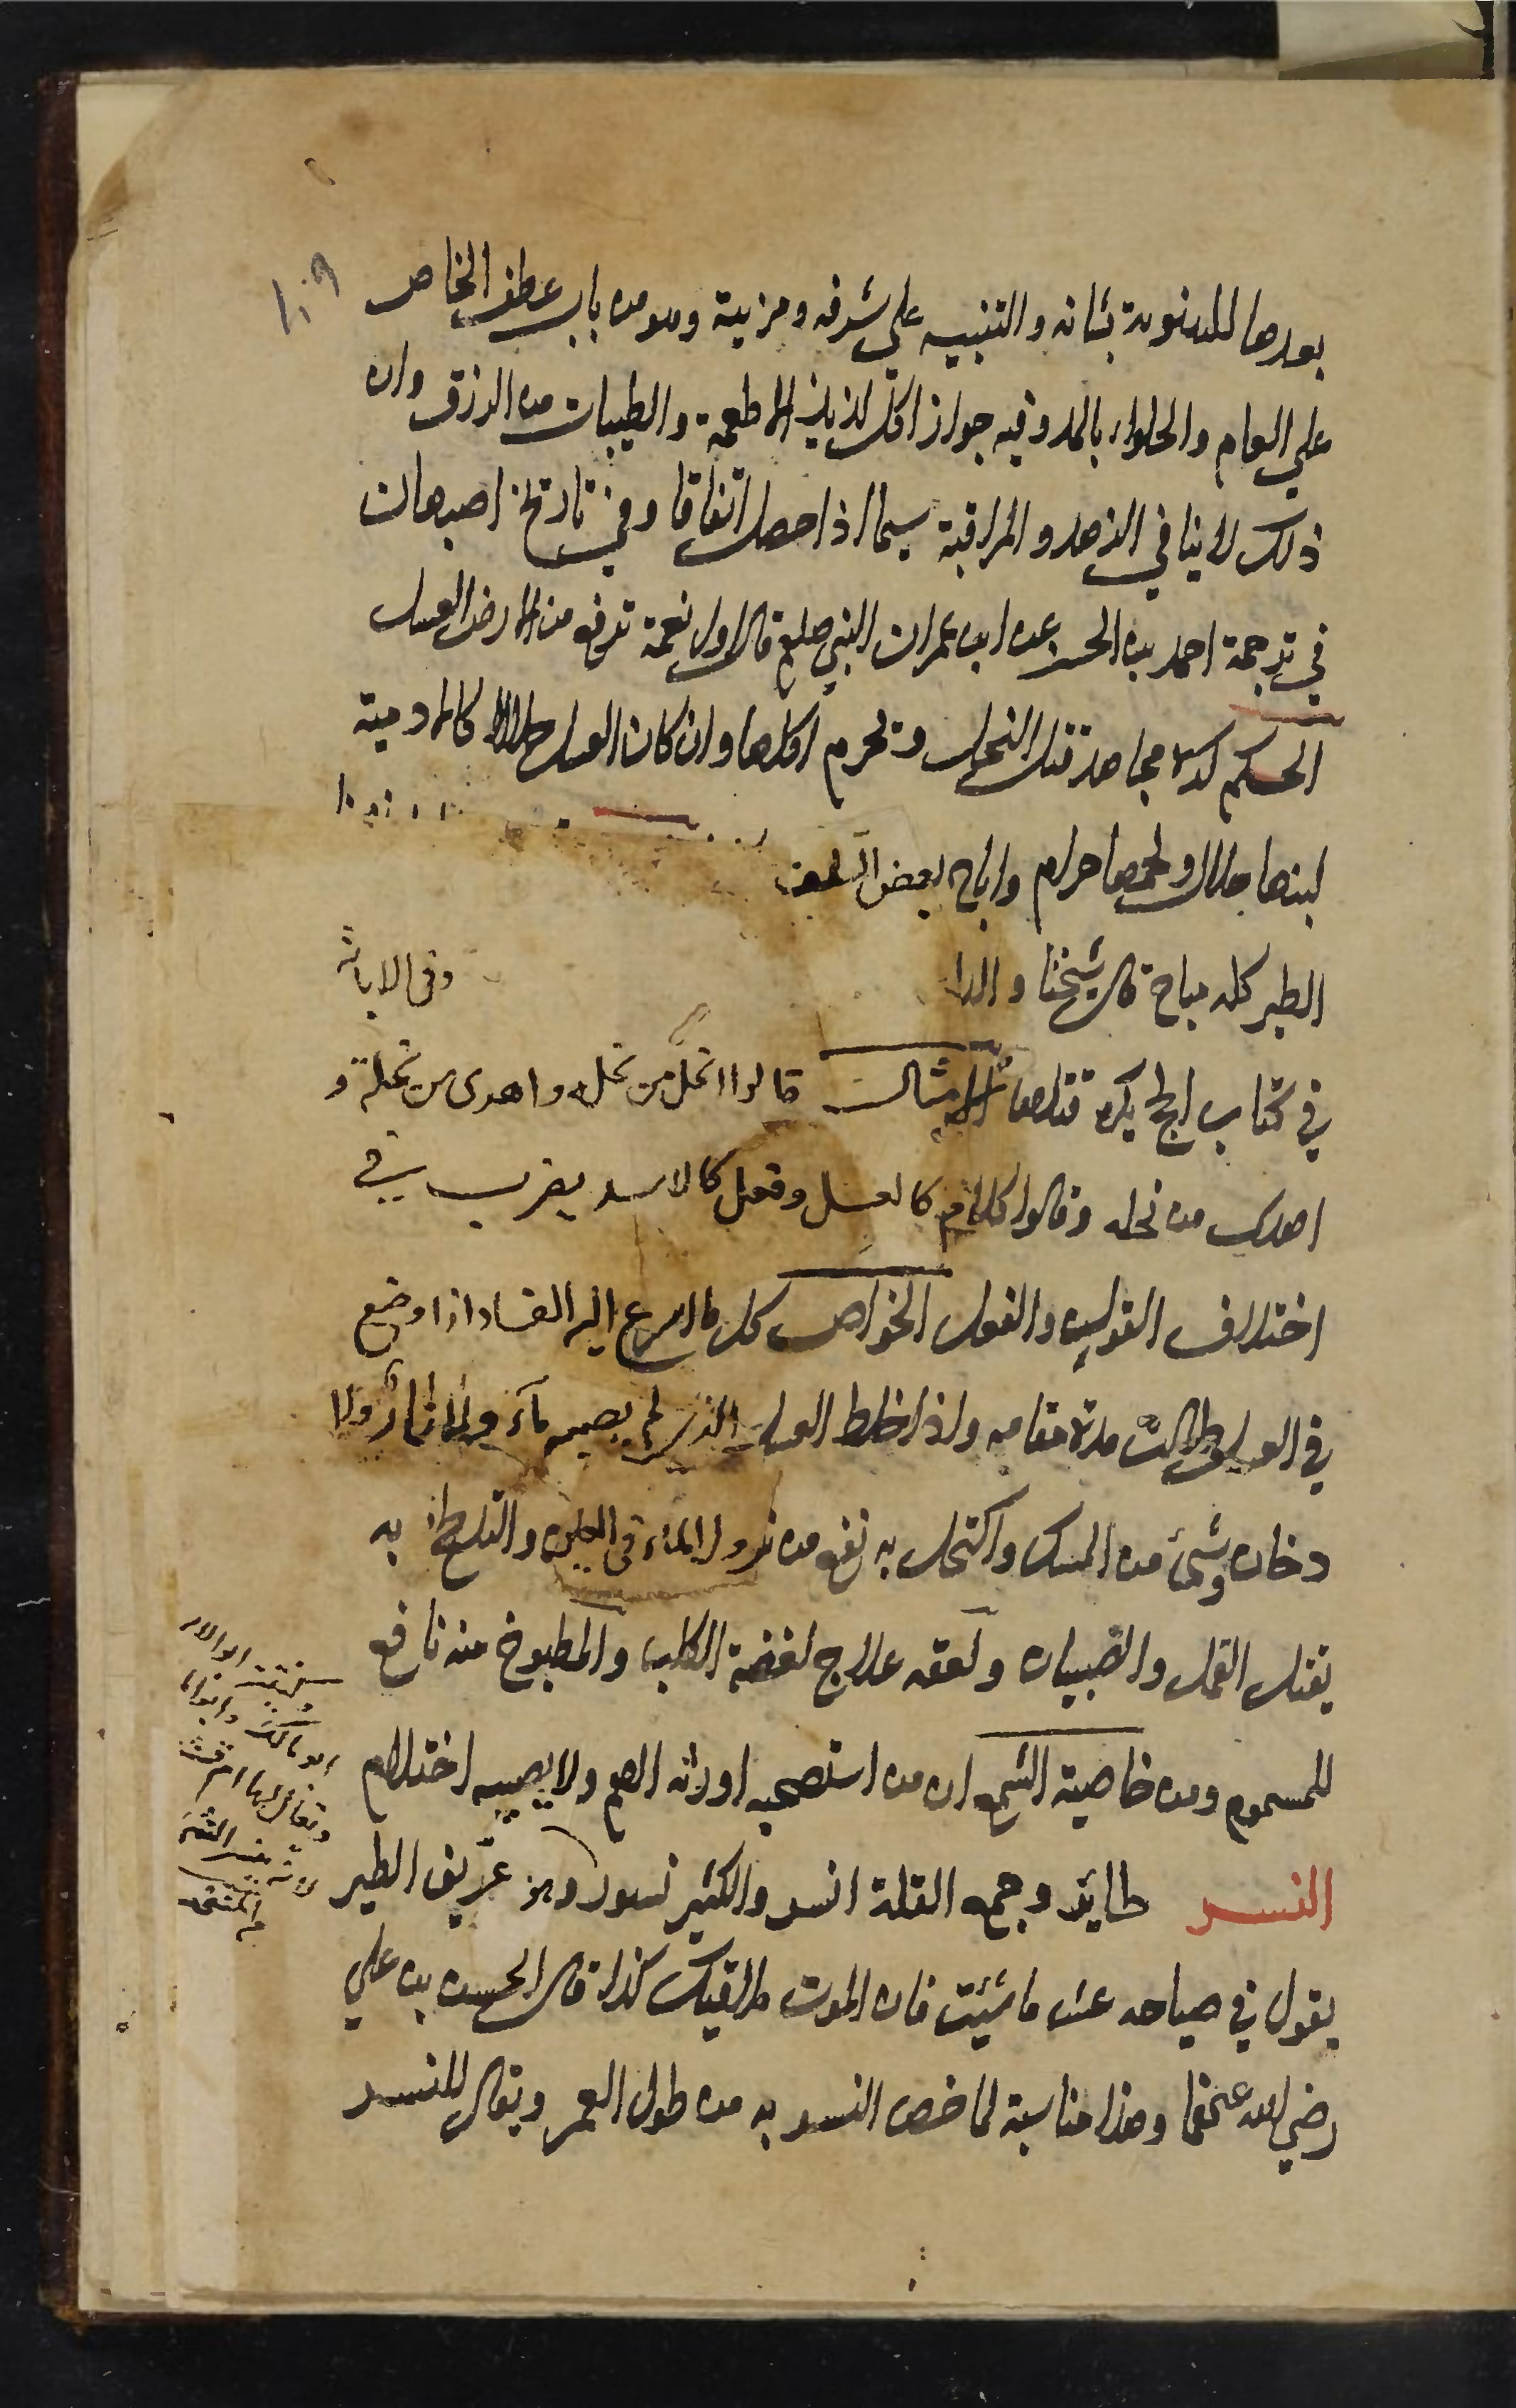 ١٠٩
بعدها للتنويه بشانه والتنبيه علي شرفه ومزيته وهو من باب عطف الخاص
علي العام والحلواء بالمد وفيه جواز اكل لذيذ الاطعمة والطيبات من الرزق وان
ذلك لا ينافي الزهد والمراقبة سيما اذا حصل اتفاقا وفي تاريخ اصبهان
في ترجمة احمد بن الحسن عن ابي عمران النبي صلعم قال اول نعمة ترفع من الارض العسل
الحكم كره مجاهد قتل النحل وتحرم اكلها وان كان العسل حلالا كالادمية
لبنها حلال ولحمها حرام واباح بعض السلف
الطير كله مباح قال شيخنا وفي الابانة
في كتاب الحج يكره قتلها الامثال قالوا انحل من نحله واهدى من نحلة و
اهدى من نحله وقالوا كلام كالعسل وفعل كالاسد يضرب في
اختلاف القول والفعل الخواص كل ما اسرع اليه الفساد اذا وضع
في العسل طالت مدة مقامه واذا خلط العسل الذي لم يصبه ماء ولا نار ولا
دخان وشئ من المسك واكتحل به نفع من نزول الماء في العين والتلطخ به
يقتل القمل والصيبان ولعقه علاج لعضة الكلب والمطبوخ منه نافع
للمسموم ومن خاصية الشمع ان من استصحبه اورثه الهم ولا يصيبه احتلام
النسر طاير وجمع القلة انسر والكثير نسور وهو عريف الطير
يقول في صياحه عش ما شيت فان الموت ملاقيك كذا قال الحسن بن علي
رضي الله عنهما وهذا مناسبة لما خص النسر به من طول العمر ويقال للنسر